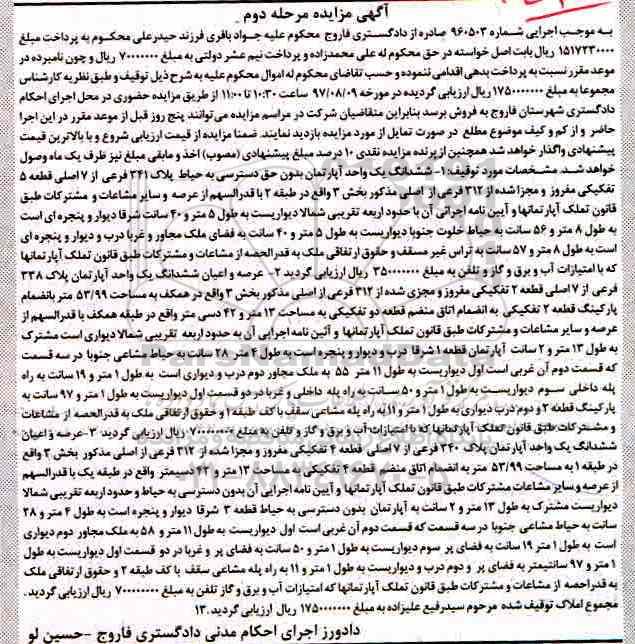 آگهی مزایده مرحله دوم
به موجب اجرایی شماره ۹۶۰۵۰۳ صادره از دادگستری فاروج محکوم علیه جواد باقری فرزند حیدرعلی محکوم به پرداخت مبلغ
۱۵۱۷۲۳۰۰۰۰ ریال بابت اصل خواسته در حق محکوم له علی محمدزاده و پرداخت نیم عشر دولتی به مبلغ ۷۰۰۰۰۰۰۰ ریال و چون نامبرده در
موعد مقرر نسبت به پرداخت بدهی اقدامی ننموده و حسب تقاضای محکوم له اموال محکوم علیه به شرح ذیل توقیف و طبق نظریه کارشناس
مجموعا به مبلغ ۱۷۵۰۰۰۰۰۰۰ ریال ارزیابی گردیده در مورخه ۹۷/۰۸/۰۹ ساعت ۱۰:۳۰ تا ۱۱:۰۰ از طریق مزایده حضوری در محل اجرای احکام
دادگستری شهرستان فاروج به فروش برسد بنابراین متقاضیان شرکت در مراسم مزایده می توانند پنج روز قبل از موعد مقرر در این اجرا
حاضر و از کم و کیف موضوع مطلع در صورت تمایل از مورد مزایده بازدید نمایند. ضمنا مزایده از قیمت ارزیابی شروع و با بالاترین قیمت
پیشنهادی واگذار خواهد شد همچنین از برنده مزایده نقدی ۱۰ درصد مبلغ پیشنهادی (مصوب) اخذ و مابقی مبلغ نیز ظرف یک ماه وصول
خواهد شد. مشخصات مورد توقیف: ۱- ششدانگ یک واحد آپارتمان بدون حق دسترسی به حیاط پلاک ۳۴۱ فرعی از ۷ اصلی قطعه ۵
تفکیکی مفروز و مجزا شده از ۳۱۲ فرعی از اصلی مذکور بخش ۳ واقع در طبقه ۲ با قدرالسهم از عرصه و سایر مشاعات و مشترکات طبق
قانون تملک آپارتمانها و آیین نامه اجرائی آن با حدود اربعه تقریبی شمالا دیواریست به طول ۵ متر و ۴۰ سانت شرقا دیوار و پنجره ای است
به طول ۸ متر و ۵۶ سانت به حیاط خلوت جنوبا دیواریست به طول ۵ متر و ۴۰ سانت به فضای ملک مجاور و غربا درب و دیوار و پنجره ای
است به طول ۸ متر و ۵۷ سانت به تراس غیر مسقف و حقوق ارتفاقی ملک به قدرالحصه از مشاعات و مشترکات طبق قانون تملک آپارتمانها
که با امتیازات آب و برق و گاز و تلفن به مبلغ ۳۵۰۰۰۰۰۰۰ ریال ارزیابی گردید ۲- عرصه و اعیان ششدانگ یک واحد آپارتمان پلاک ۳۳۸
فرعی از ۷ اصلی قطعه ۲ تفکیکی مفروز و مجزی شده از ۳۱۲ فرعی از اصلی مذکور بخش ۳ واقع در همکف به مساحت ۵۳/۹۹ متر بانضمام
پارکینگ قطعه ۲ تفکیکی به انضمام اتاق منضم قطعه دو تفکیکی به مساحت ۱۳ متر و ۴۲ دسی متر واقع در طبقه همکف با قدرالسهم از
عرصه و سایر مشاعات و مشترکات طبق قانون تملک آپارتمانها و آئین نامه اجرایی آن به حدود اربعه تقریبی شمالا دیواری است مشترک
به طول ۱۳ متر و ۲ سانت آپارتمان قطعه ۱ شرقا درب و دیوار و پنجره است به طول ۴ متر ۲۸ سانت به حیاط مشاعی جنوبا در سه قسمت
که قسمت دوم آن غربی است اول دیواریست به طول ۱۱ متر ۵۵ به ملک مجاور دوم درب و دیواری است به طول ۱ متر و ۱۹ سانت به راه
پله داخلی سوم دیواریست به طول ۱ متر و ۵۰ سانت به راه پله داخلی و غربا در دو قسمت اول دیواریست به طول ۱ متر و ۹۷ سانت به
پارکینگ قطعه ۲ و دوم درب دیواری به طول ۱ متر و ۱۱ به راه پله مشاعی سقف با کف طبقه ۱ و حقوق ارتفاقی ملک به قدرالحصه از مشاعات
و مشترکات طبق قانون تملک آپارتمانها که با امتیازات آب و برق و گاز و تلفن به مبلغ ۷۰۰۰۰۰۰۰۰ ریال ارزیابی گردید ۳- عرصه و اعیان
ششدانگ یک واحد آپارتمان پلاک ۳۴۰ فرعی از ۷ اصلی قطعه ۴ تفکیکی مفروز و مجزا شده از ۳۱۲ فرعی از اصلی مذکور بخش ۳ واقع
در طبقه ۱ به مساحت ۵۳/۹۹ متر به انضمام اتاق منضم قطعه ۴ تفکیکی به مساحت ۱۳ متر و ۴۲ دسیمتر واقع در طبقه یک با قدرالسهم
از عرصه و سایر مشاعات مشترکات طبق قانون تملک آپارتمانها و آیین نامه اجرایی آن بدون دسترسی به حیاط و حدود اربعه تقریبی شمالا
دیواریست مشترک به طول ۱۳ متر و ۲ سانت به آپارتمان بدون دسترسی به حیاط قطعه ۳ شرقا دیوار و پنجره است به طول ۴ متر و ۲۸
سانت به حیاط مشاعی جنوبا در سه قسمت که قسمت دوم آن غربی است اول دیواریست به طول ۱۱ متر و ۵۸ به ملک مجاور دوم دیواری
است به طول ۱ متر ۱۹ سانت به فضای پر سوم دیواریست به طول ۱ متر و ۵۰ سانت به فضای پر و غربا در دو قسمت اول دیواریست به طول
۱ متر و ۹۷ سانتیمتر به فضای پر و دوم درب و دیواریست به طول ۱ متر و ۱۱ به راه پله مشاعی سقف با کف طبقه ۲ و حقوق ارتفاقی ملک
به قدراحصه از مشاعات و مشترکات طبق قانون تملک آپارتمانها که امتیازات آب و برق و گاز تلفن به مبلغ ۷۰۰۰۰۰۰۰۰ ریال ارزیابی گردید.
مجموع املاک توقیف شده مرحوم سیدرفیع علیزاده به مبلغ ۱۷۵۰۰۰۰۰۰۰ ریال ارزیابی گردید. ۱۳
دادورز اجرای احکام مدنی دادگستری فاروج - حسین لو